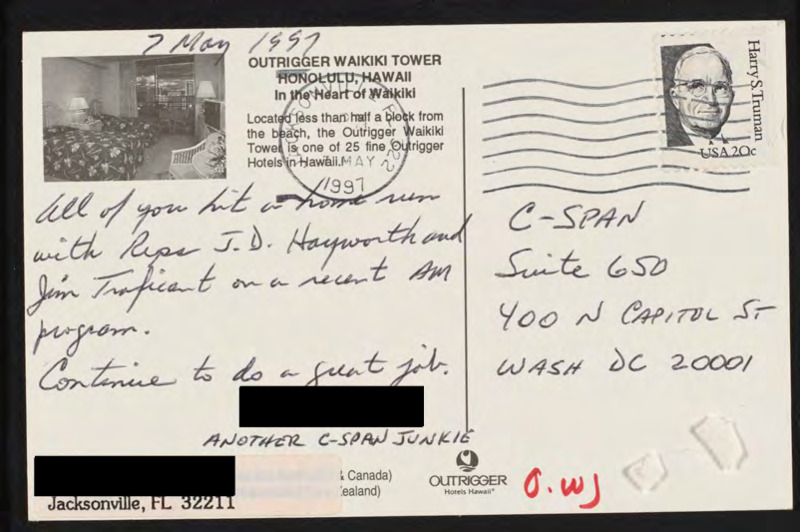 7 May 1997
OUTRIGGER WAIKIKI TOWER
HONOLULU, HAWAII
In the Heart of Waikiki
Located less than half a block from
the beach, the Outrigger Waikiki
Tower is one of 25 fine Outrigger
Hotels in Hawaii.
MAY
1997
Harry S. Truman
USA 20c
All of you hit a home run
with Reps J.D. Hayworth and
Jim Traficant on a recent AM
program.
Continue to do a great job.
ANOTHER C-SPAN JUNKIE
C-SPAN
Suite 650
400 N CAPITOL ST
WASH DC 20001
Jacksonville, FL 32211
& Canada)
ealand)
OUTRIGGER
Hotels Hawaii®
O.WJ